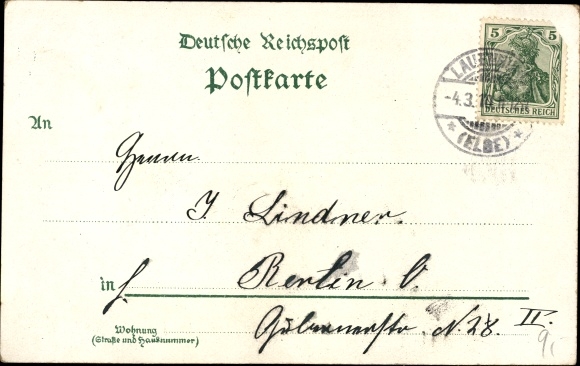 Deutsche Reichspost
Postkarte
5 5
DEUTSCHES REICH
-4.3.
* (ELBE) *
An
Herrn
J. Lindner.
in
Berlin O.
N. 28 II.
Wohnung
(Straße und Hausnummer)
9,-